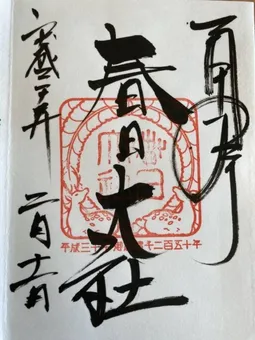 奉拝
春日大社
平成三十年 二月十一日
平成三十年御創建千二百五十年